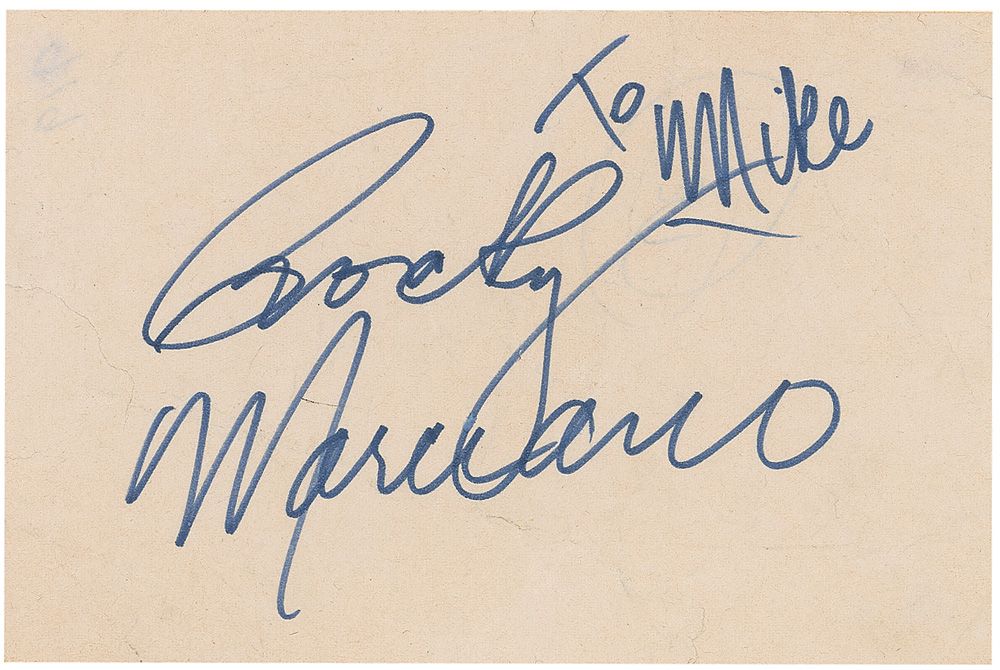 To Mike
Rocky
Marciano